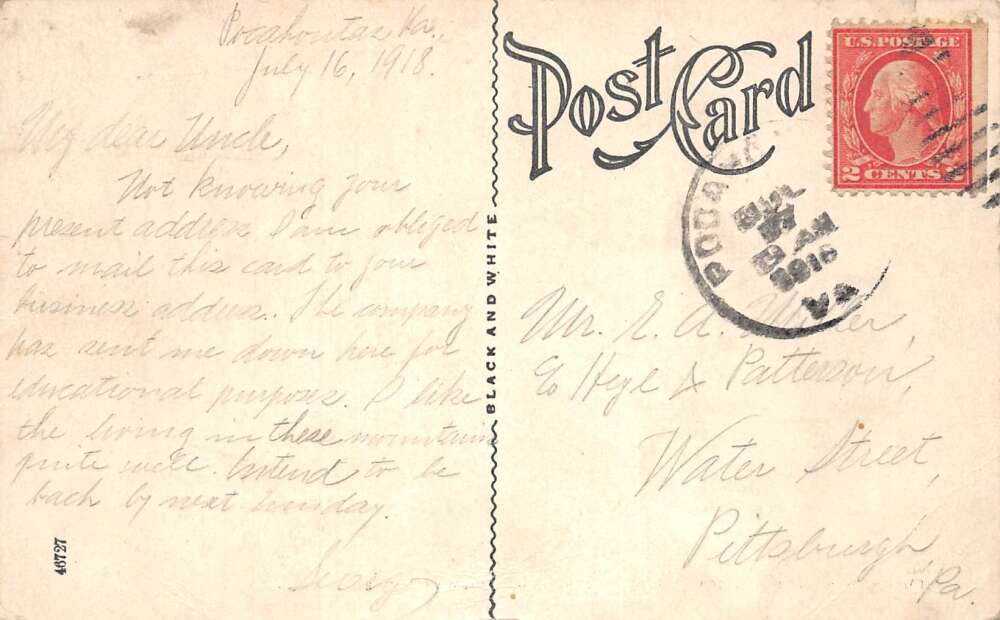 Pocahontas Va.,
July 16, 1918.
My dear Uncle,
Not knowing your
present address I am obliged
to mail this card to your
business address. The company
has sent me down here for
educational purposes. I like
the living in these mountains
quite well. Intend to be
back by next Sunday.
46727
BLACK AND WHITE
Post Card
U.S. POSTAGE
2 CENTS 2
POCA
JUL
AM
1918
VA
Mr. E. A.
c/o Heyl & Patterson,
Water Street,
Pittsburgh
Pa.